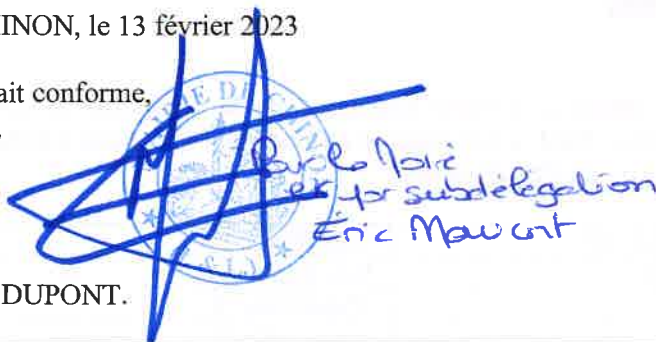 INON, le 13 février 2023
ait conforme,
IE DE CHIN
Pour le Maire
et par subdélégation
Éric Maucort
DUPONT.